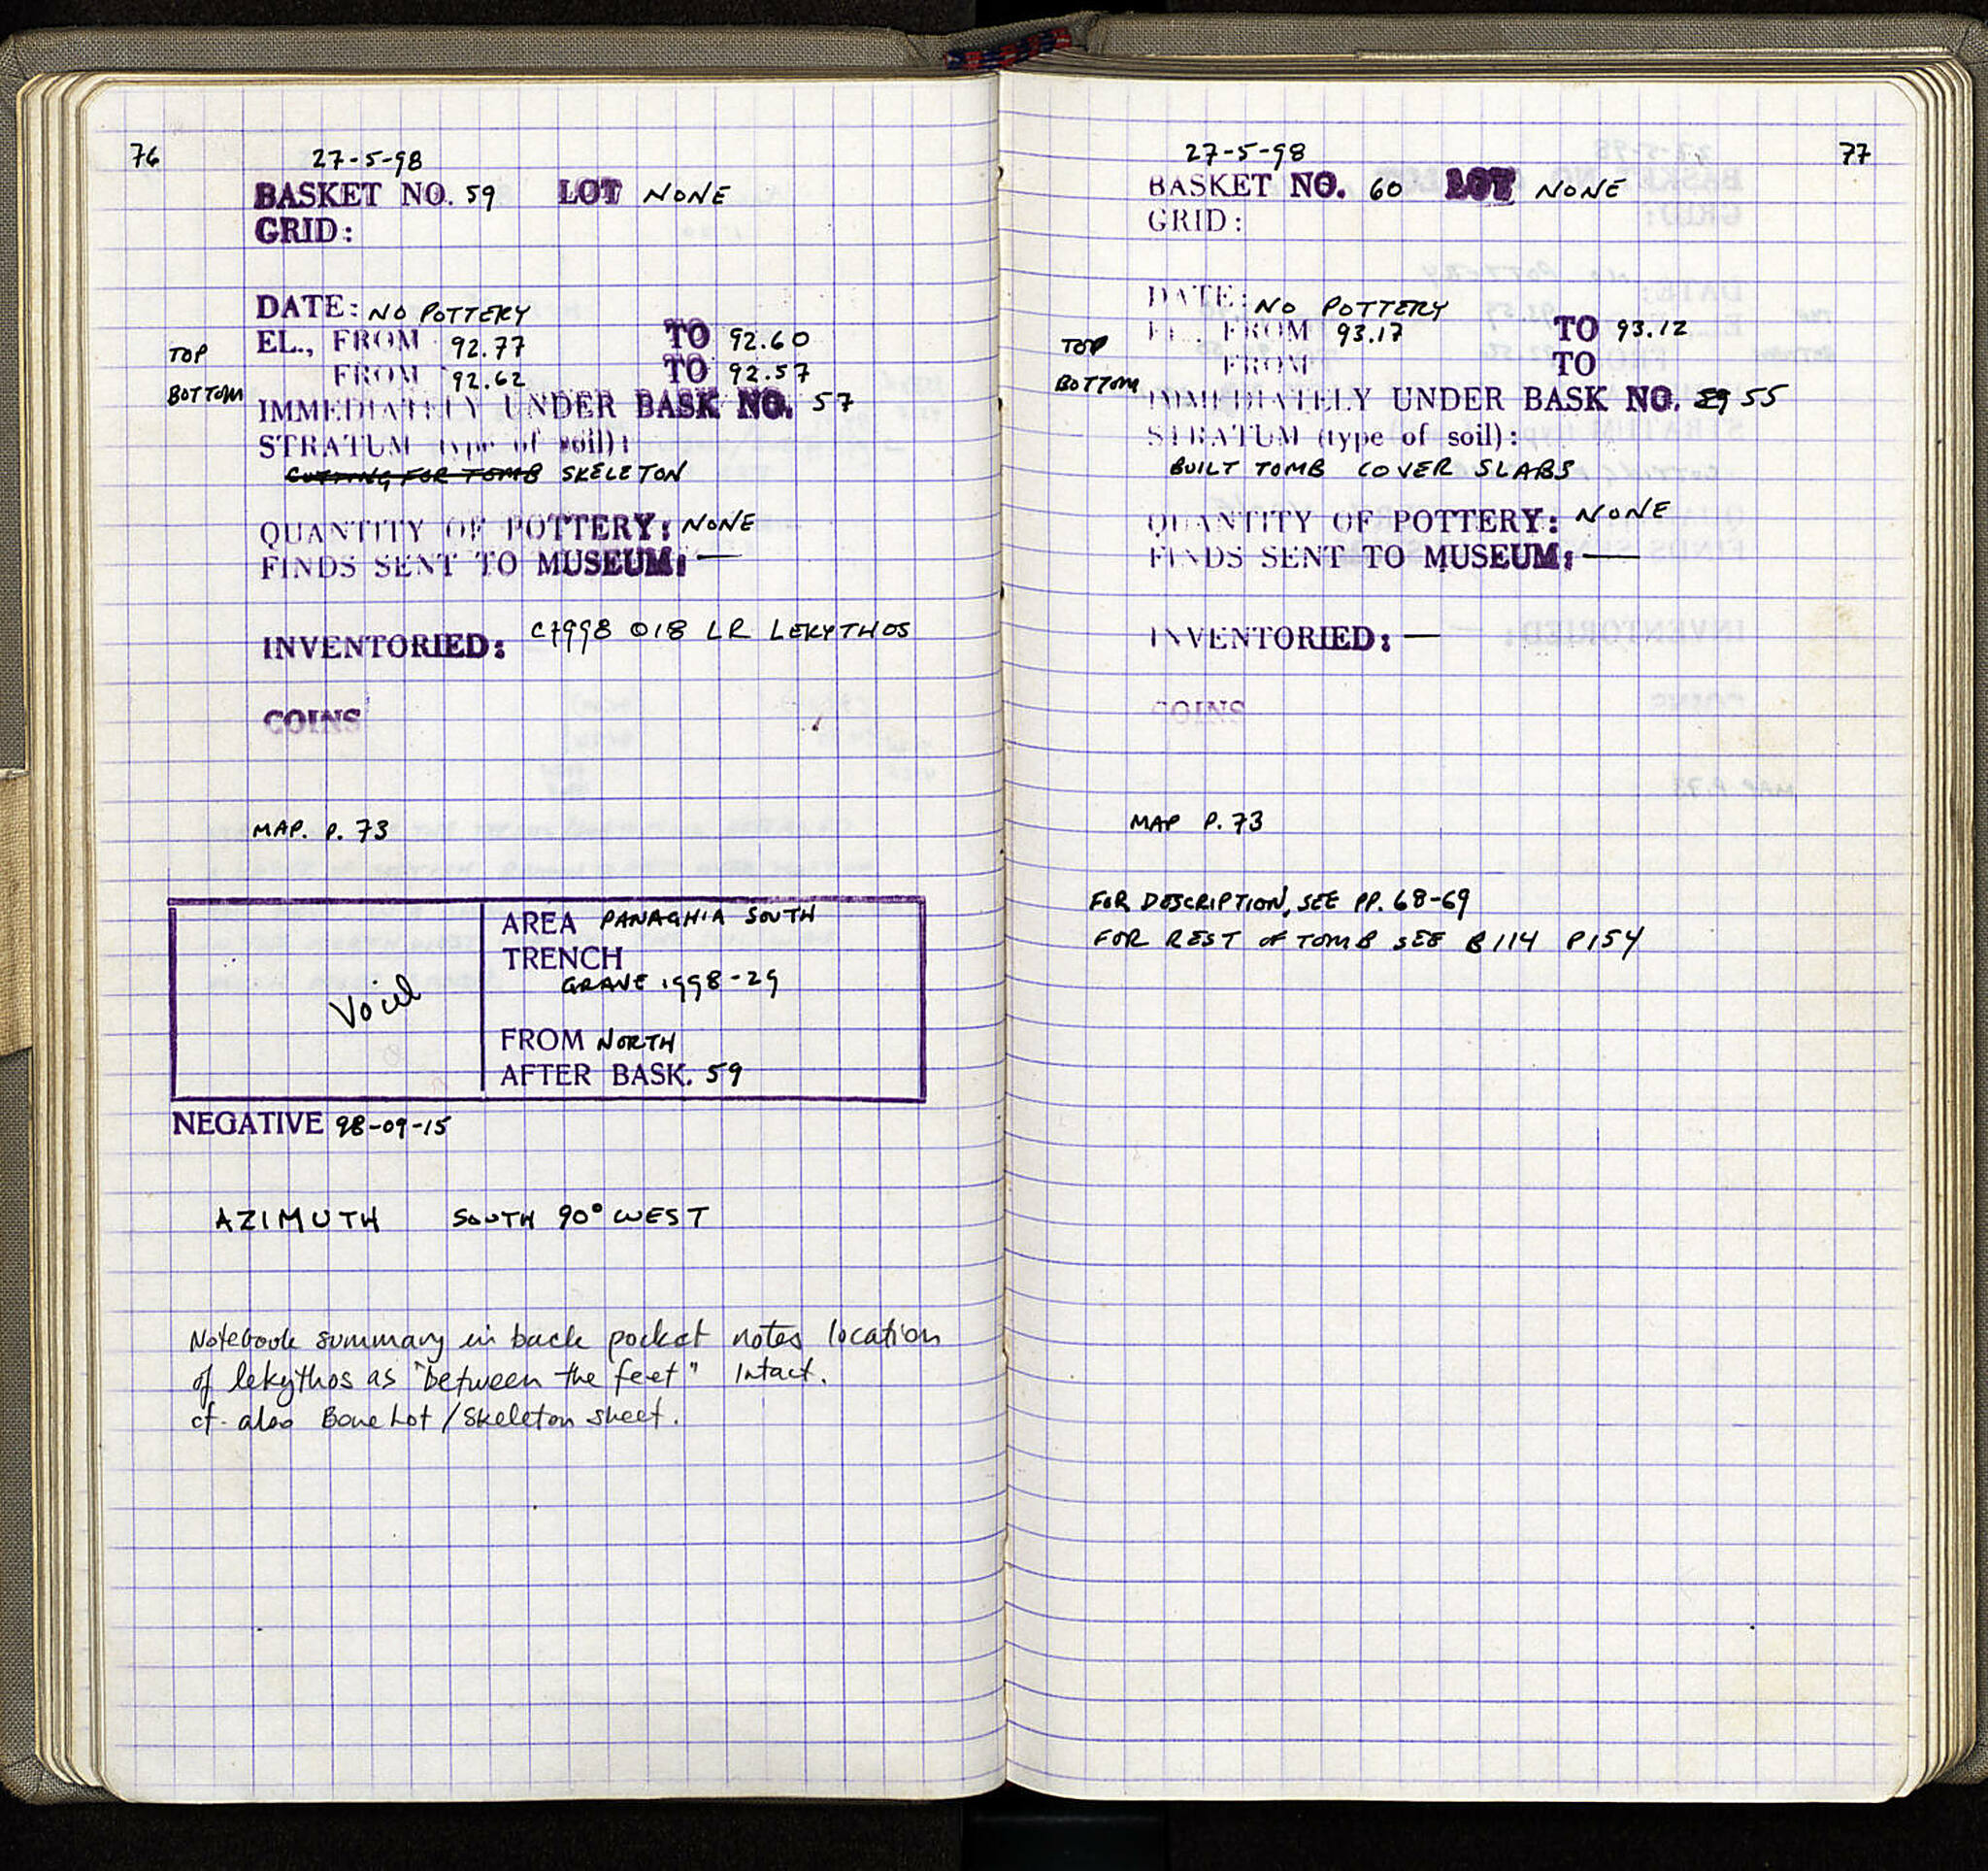 76
27-5-98
BASKET NO. 59 LOT NONE
GRID:
DATE: NO POTTERY
TOP EL., FROM 92.77 TO 92.60
BOTTOM FROM 92.62 TO 92.57
IMMEDIATELY UNDER BASK NO. 57
STRATUM (type of soil):
CUTTING FOR TOMB SKELETON
QUANTITY OF POTTERY: NONE
FINDS SENT TO MUSEUM: —
INVENTORIED: C1998 018 LR LEKYTHOS
COINS
MAP. P. 73
Void
AREA PANAGHIA SOUTH
TRENCH
GRAVE 1998-29
FROM NORTH
AFTER BASK. 59
NEGATIVE 98-09-15
AZIMUTH SOUTH 90° WEST
Notebook summary in back pocket notes location
of lekythos as "between the feet" Intact.
cf. also Bone Lot / Skeleton sheet.
77
27-5-98
BASKET NO. 60 LOT NONE
GRID:
DATE: NO POTTERY
TOP EL., FROM 93.17 TO 93.12
BOTTOM FROM TO
IMMEDIATELY UNDER BASK NO. 55
STRATUM (type of soil):
BUILT TOMB COVER SLABS
QUANTITY OF POTTERY: NONE
FINDS SENT TO MUSEUM: —
INVENTORIED: —
COINS
MAP P. 73
FOR DESCRIPTION, SEE PP. 68-69
FOR REST OF TOMB SEE B114 P154